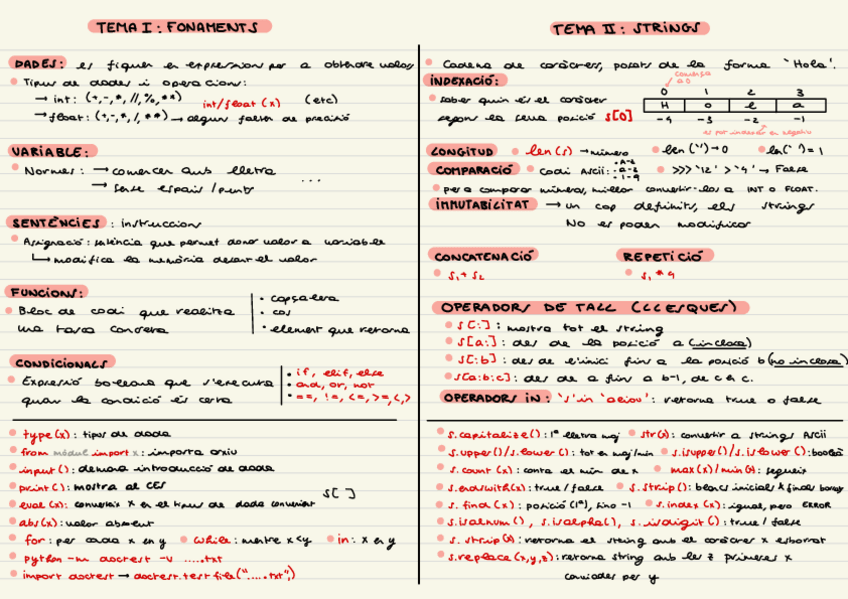 TEMA I: FONAMENTS
DADES: es fiquen en expressions per a obtendre valors
Tipus de dades i operacions:
→ int: (+,-,*,//,%,**) int/float (x) (etc)
→ float: (+,-,*,/,**) → algun falten de precisió
VARIABLE:
Normes: → començar amb lletra
→ sense espais/punts ...
SENTÈNCIES: instruccions
Assignació: sentència que permet donar valor a variable
↳ modifica la memòria desant el valor
FUNCIONS:
Bloc de codi que realitza
una tasca concreta
• capçalera
• cos
• element que retorna
CONDICIONALS
Expressió booleana que s'executa
quan la condició és certa
• if, elif, else
• and, or, not
• ==, !=, <=, >=, <, >
type(x): tipus de dada
from mòdul import x: importa arxiu
input(): demana introducció de dada
print(): mostra al
eval(x): converteix x en el tipus de dada convenient s[ ]
abs(x): valor absolut
for: per cada x en y while: mentre x<y in: x en y
python -m doctest -v .....txt
import doctest → doctest.testfile(".....txt")
TEMA II: STRINGS
Cadena de caràcters, posats de la forma 'Hola'.
INDEXACIÓ:
comença a 0
saber quin és el caràcter
segons la seva posició s[0]
0 1 2 3
H o l a
-4 -3 -2 -1
es pot indexar en negatiu
LONGITUD len(s) → número len('')→0 len(' ')=1
COMPARACIÓ codi Ascii: ·A-Z ·a-z ·1-9 >>> '12' > '4' → False
per a comparar números, millor convertir-los a INT o FLOAT.
IMMUTABILITAT → un cop definits, els strings
No es poden modificar
CONCATENACIÓ REPETICIÓ
s₁ + s₂ s₁ * 4
OPERADORS DE TALL (LLESQUES)
s[:]: mostra tot el string
s[a:]: des de la posició a (inclosa)
s[:b]: des de l'inici fins a la posició b (no inclosa)
s[a:b:c]: des de a fins a b-1, de c en c.
OPERADORS IN: 's' in 'aeiou': retorna true o false
s.capitalize(): 1ª lletra maj str(s): convertir a strings Ascii
s.upper()/s.lower(): tot en maj/min s.isupper()/s.islower(): booleà
s.count(x): conta el núm de x max(x)/min(x): segueix
s.endswith(x): true/false s.strip(): blancs inicials & finals
s.find(x): posició (1ª), sino -1 s.index(x): igual, però ERROR
s.isalnum(), s.isalpha(), s.isdigit(): true/false
s.strip(x): retorna el string amb el caràcter x esborrat
s.replace(x,y,z): retorna string amb les z primeres x
canviades per y